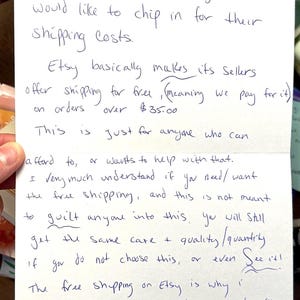 would like to chip in for their
shipping costs.
Etsy basically makes its sellers
offer shipping for free, (meaning we pay for it)
on orders over $35.00
This is just for anyone who can
afford to, or wants to help with that.
I very much understand if you need/want
the free shipping, and this is not meant
to guilt anyone into this. You will still
get the same care + quality/quantity
if you do not choose this, or even see it!
The free shipping on Etsy is why i